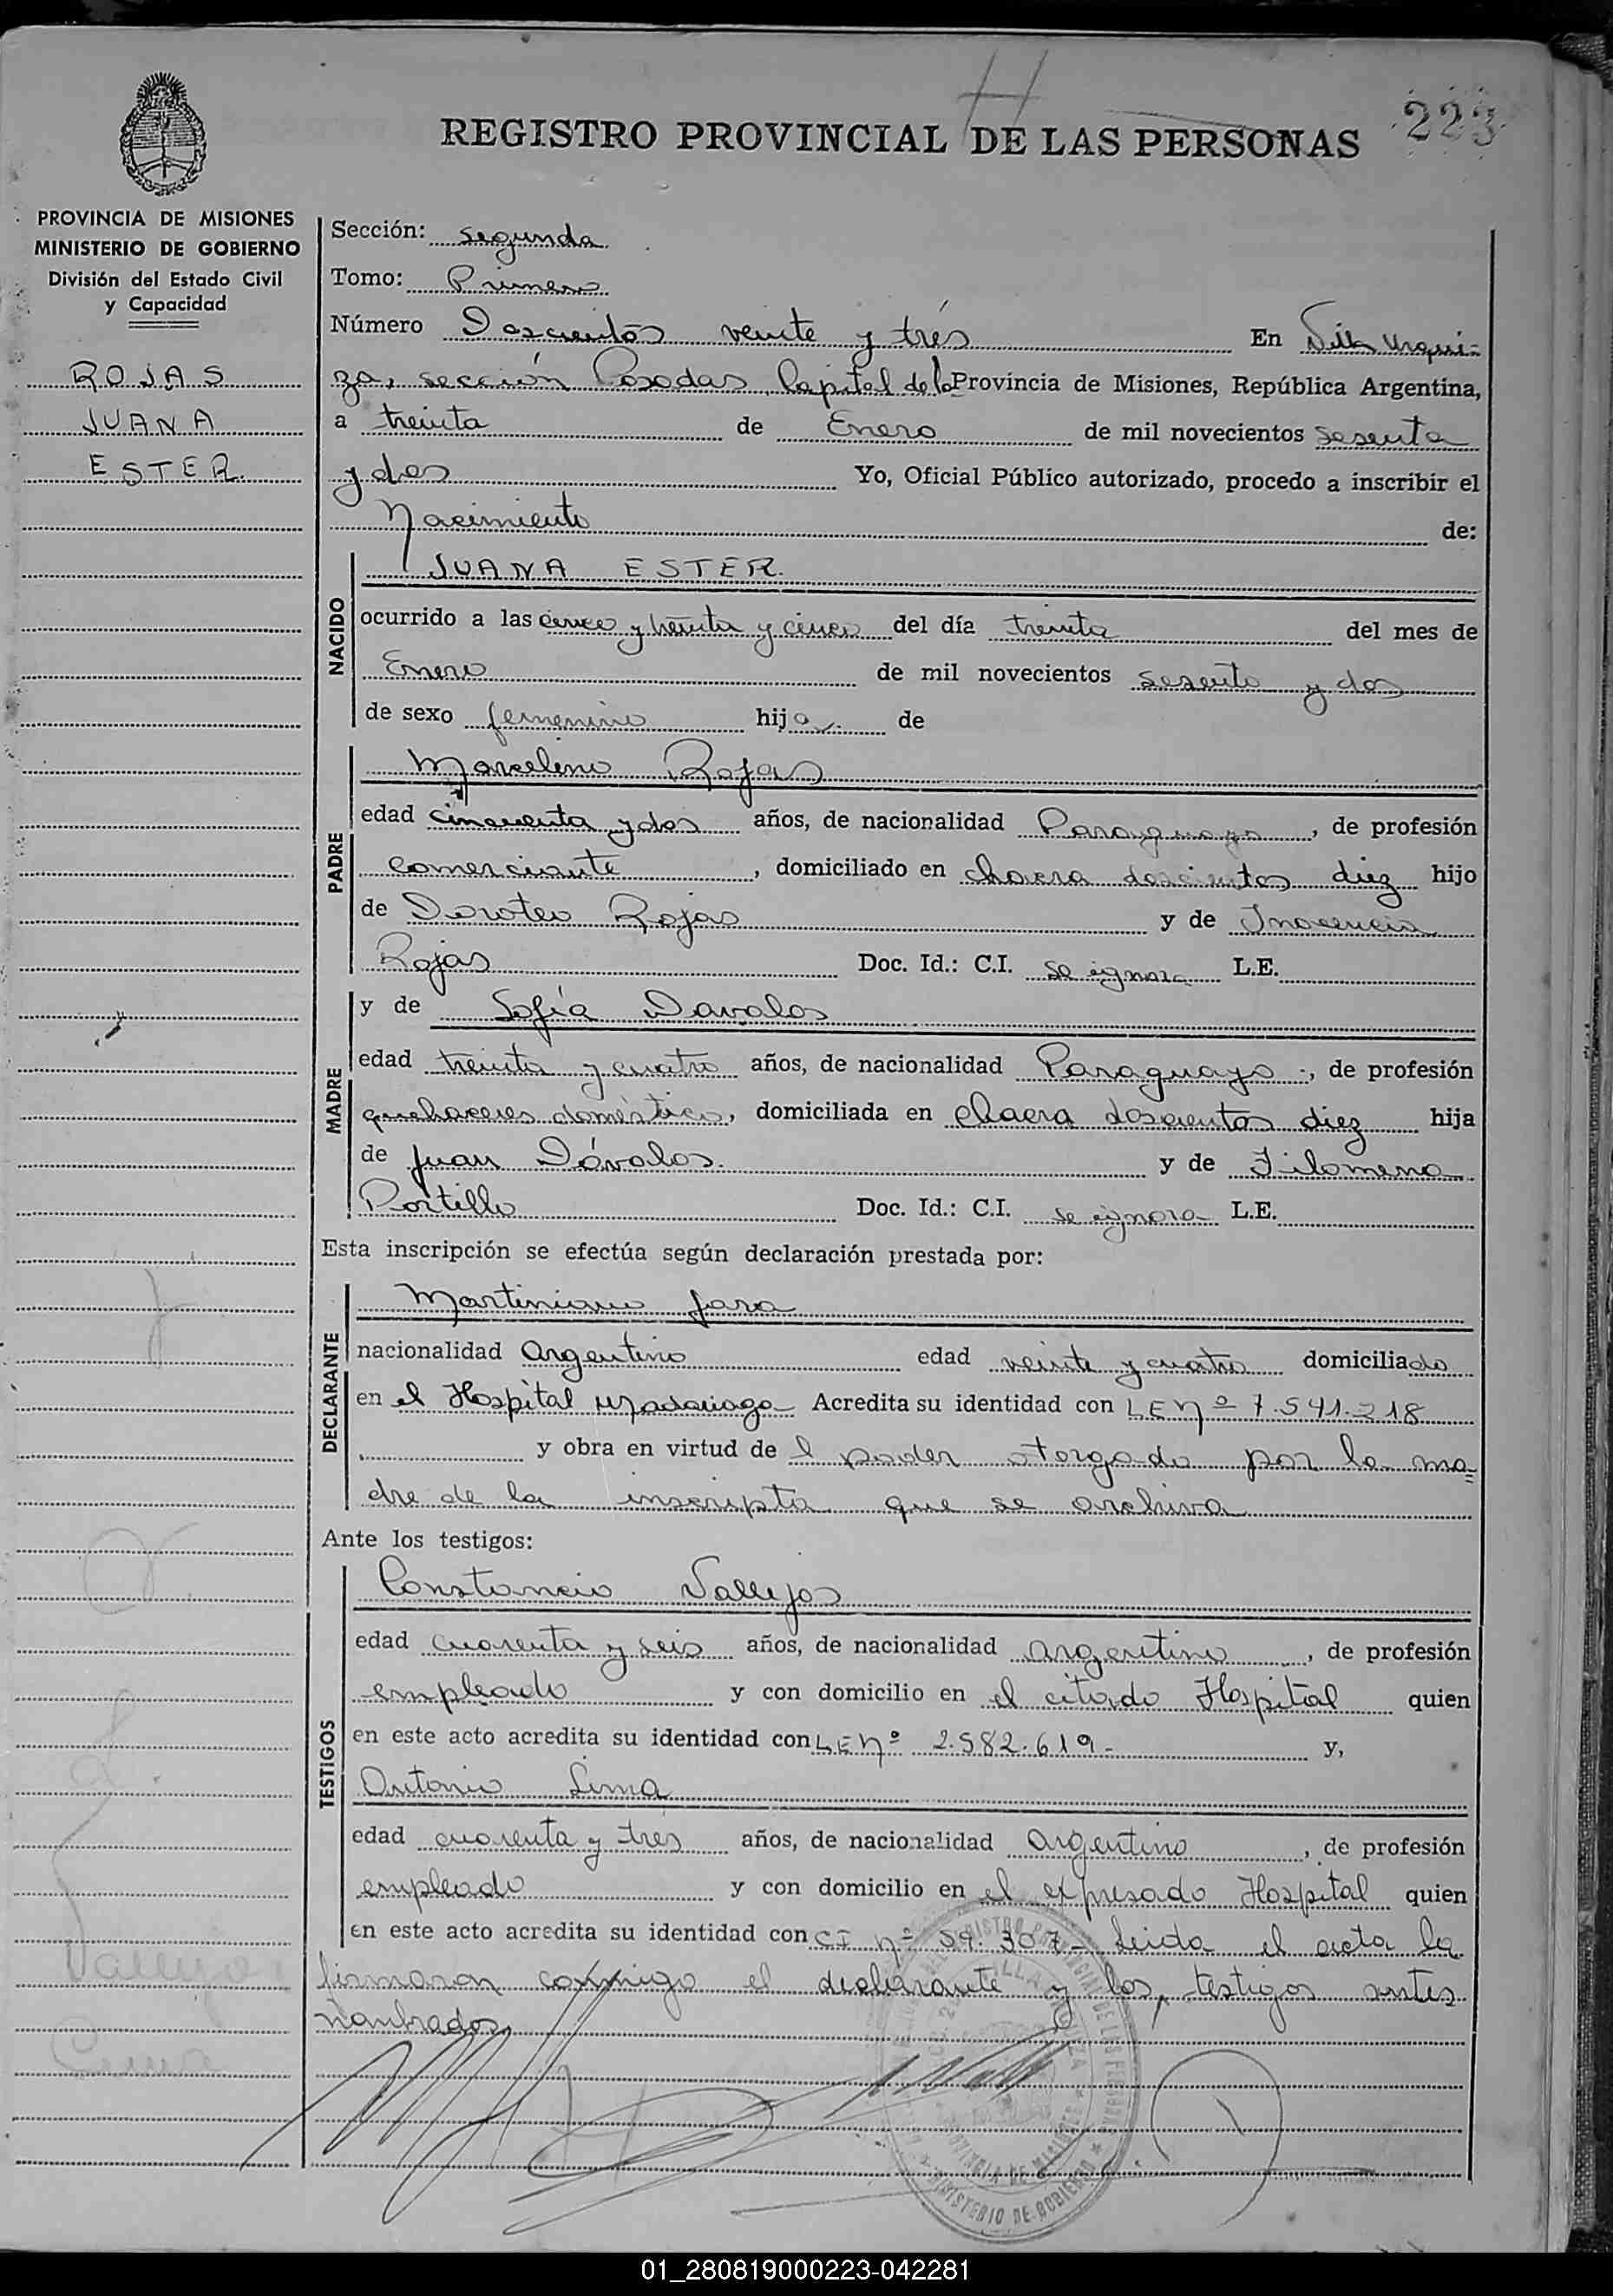 223
REGISTRO PROVINCIAL DE LAS PERSONAS
PROVINCIA DE MISIONES
MINISTERIO DE GOBIERNO
División del Estado Civil
y Capacidad
ROJAS
JUANA
ESTER.
Sección: segunda
Tomo: Primero
Número Doscientos veinte y trés En Villa Urqui-
za, sección Posadas Capital de la Provincia de Misiones, República Argentina,
a treinta de Enero de mil novecientos sesenta
y dos Yo, Oficial Público autorizado, procedo a inscribir el
Nacimiento de:
NACIDO
JUANA ESTER.
ocurrido a las cinco y treinta y cinco del día treinta del mes de
Enero de mil novecientos sesenta y dos
de sexo femenino hija de
PADRE
Marcelino Rojas
edad cincuenta y dos años, de nacionalidad Paraguaya, de profesión
comerciante, domiciliado en chacra doscientos diez hijo
de Doroteo Rojas y de Inocencia
Rojas Doc. Id.: C.I. se ignora L.E.
MADRE
y de Sofía Davalos
edad treinta y cuatro años, de nacionalidad Paraguaya, de profesión
quehaceres doméstico, domiciliada en chacra doscientos diez hija
de Juan Dávalos. y de Filomena
Portillo Doc. Id.: C.I. se ignora L.E.
Esta inscripción se efectúa según declaración prestada por:
DECLARANTE
Martiniano Jara
nacionalidad Argentino edad veinte y cuatro domiciliado
en el Hospital Madariaga Acredita su identidad con L E Nº 7.541.218
y obra en virtud de l poder otorgado por la ma=
dre de la inscripta que se archiva
Ante los testigos:
TESTIGOS
Constancio Vallejos
edad cuarenta y seis años, de nacionalidad argentino, de profesión
empleado y con domicilio en el citado Hospital quien
en este acto acredita su identidad con L E Nº 2.582.619- y,
Antonio Lima
edad cuarenta y tres años, de nacionalidad argentino, de profesión
empleado y con domicilio en el expresado Hospital quien
en este acto acredita su identidad con CI nº 59.307- Leida el acta la
firmaron conmigo el declarante y los testigos antes
nombrados
MINISTERIO DE GOBIERNO
PROVINCIA DE MISIONES
01_280819000223-042281